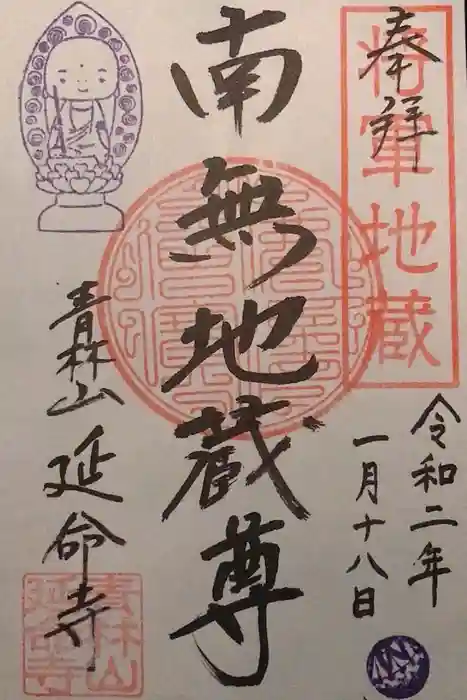 奉拝
将軍地蔵
令和二年
一月十八日
南無地蔵尊
青林山 延命寺
青林山
延命寺